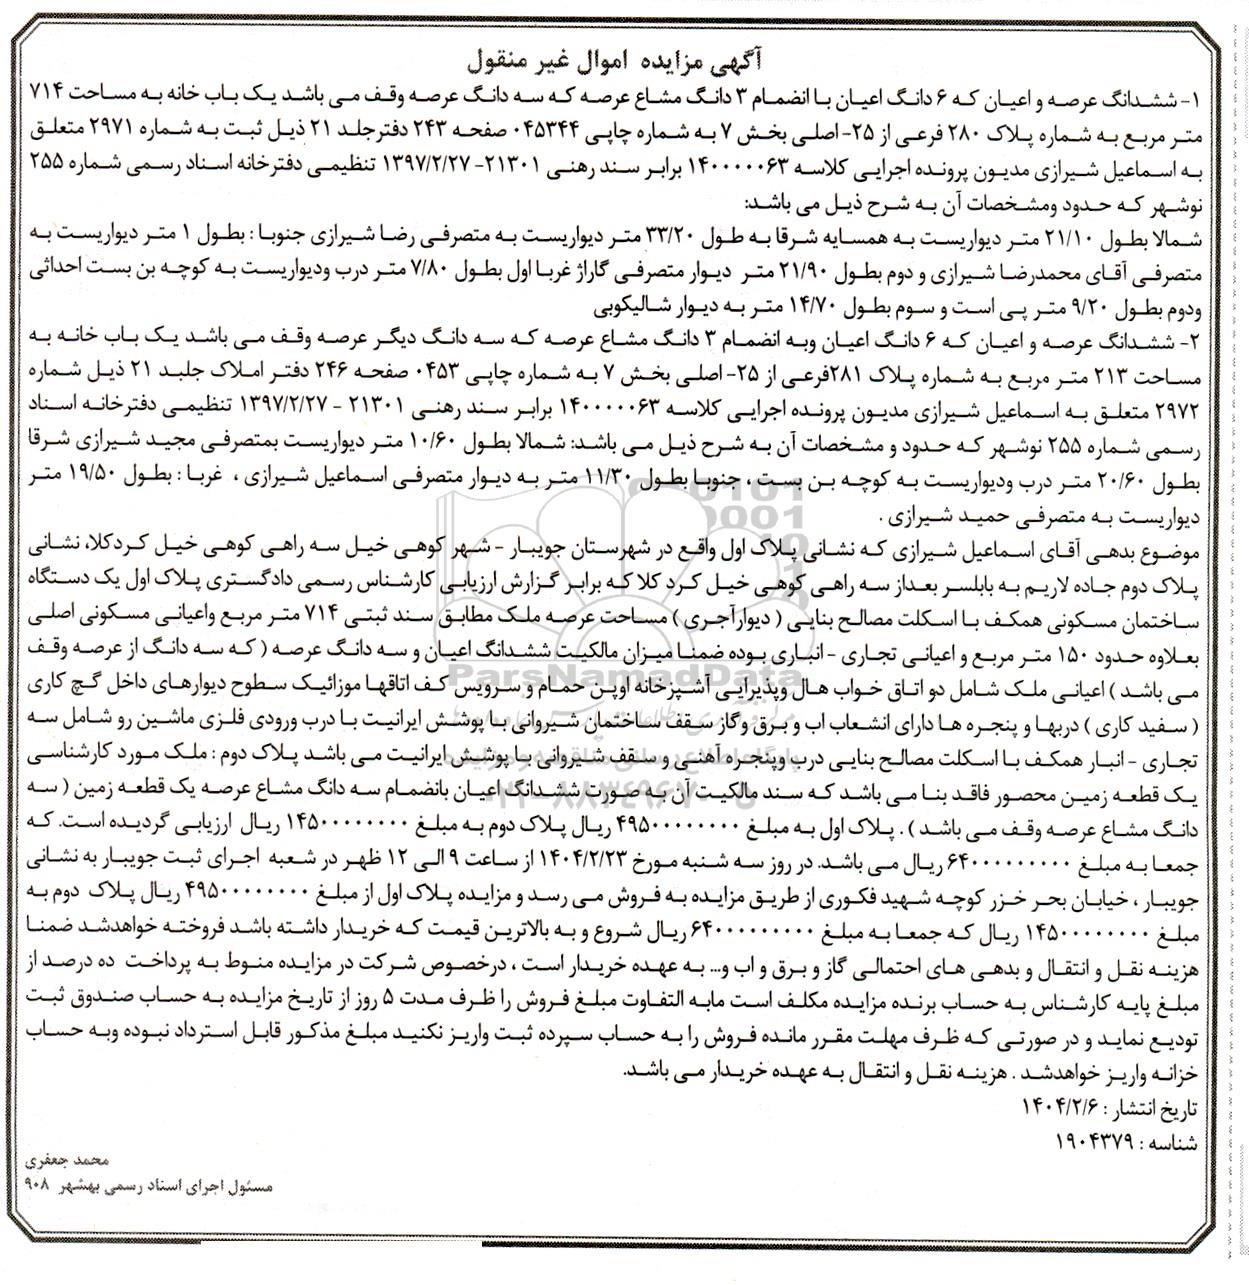 آگهی مزایده اموال غیر منقول
۱- ششدانگ عرصه و اعیان که ۶ دانگ اعیان با انضمام ۳ دانگ مشاع عرصه که سه دانگ عرصه وقف می باشد یک باب خانه به مساحت ۷۱۴
متر مربع به شماره پلاک ۲۸۰ فرعی از ۲۵- اصلی بخش ۷ به شماره چاپی ۰۴۵۳۴۴ صفحه ۲۴۳ دفترجلد ۲۱ ذیل ثبت به شماره ۲۹۷۱ متعلق
به اسماعیل شیرازی مدیون پرونده اجرایی کلاسه ۱۴۰۰۰۰۰۶۳ برابر سند رهنی ۲۱۳۰۱- ۱۳۹۷/۲/۲۷ تنظیمی دفترخانه اسناد رسمی شماره ۲۵۵
نوشهر که حدود ومشخصات آن به شرح ذیل می باشد:
شمالا بطول ۲۱/۱۰ متر دیواریست به همسایه شرقا به طول ۳۳/۲۰ متر دیواریست به متصرفی رضا شیرازی جنوبا : بطول ۱ متر دیواریست به
متصرفی آقای محمدرضا شیرازی و دوم بطول ۲۱/۹۰ متر دیوار متصرفی گاراژ غربا اول بطول ۷/۸۰ متر درب ودیواریست به کوچه بن بست احداثی
ودوم بطول ۹/۲۰ متر پی است و سوم بطول ۱۴/۷۰ متر به دیوار شالیکوبی
۲- ششدانگ عرصه و اعیان که ۶ دانگ اعیان وبه انضمام ۳ دانگ مشاع عرصه که سه دانگ دیگر عرصه وقف می باشد یک باب خانه به
مساحت ۲۱۳ متر مربع به شماره پلاک ۲۸۱فرعی از ۲۵- اصلی بخش ۷ به شماره چاپی ۰۴۵۳ صفحه ۲۴۶ دفتر املاک جلبد ۲۱ ذیل شماره
۲۹۷۲ متعلق به اسماعیل شیرازی مدیون پرونده اجرایی کلاسه ۱۴۰۰۰۰۰۶۳ برابر سند رهنی ۲۱۳۰۱ - ۱۳۹۷/۲/۲۷ تنظیمی دفترخانه اسناد
رسمی شماره ۲۵۵ نوشهر که حدود و مشخصات آن به شرح ذیل می باشد: شمالا بطول ۱۰/۶۰ متر دیواریست بمتصرفی مجید شیرازی شرقا
بطول ۲۰/۶۰ متر درب ودیواریست به کوچه بن بست ، جنوبا بطول ۱۱/۳۰ متر به دیوار متصرفی اسماعیل شیرازی ، غربا : بطول ۱۹/۵۰ متر
دیواریست به متصرفی حمید شیرازی .
موضوع بدهی آقای اسماعیل شیرازی که نشانی پلاک اول واقع در شهرستان جویبار - شهر کوهی خیل سه راهی کوهی خیل کردکلا، نشانی
پلاک دوم جاده لاریم به بابلسر بعداز سه راهی کوهی خیل کرد کلا که برابر گزارش ارزیابی کارشناس رسمی دادگستری پلاک اول یک دستگاه
ساختمان مسکونی همکف با اسکلت مصالح بنایی ( دیوارآجری ) مساحت عرصه ملک مطابق سند ثبتی ۷۱۴ متر مربع واعیانی مسکونی اصلی
بعلاوه حدود ۱۵۰ متر مربع و اعیانی تجاری - انباری بوده ضمنا میزان مالکیت ششدانگ اعیان و سه دانگ عرصه ( که سه دانگ از عرصه وقف
می باشد ) اعیانی ملک شامل دو اتاق خواب هال وپذیرایی آشپزخانه اوپن حمام و سرویس کف اتاقها موزائیک سطوح دیوارهای داخل گچ کاری
( سفید کاری ) دربها و پنجره ها دارای انشعاب اب و برق وگاز سقف ساختمان شیروانی با پوشش ایرانیت با درب ورودی فلزی ماشین رو شامل سه
تجاری - انبار همکف با اسکلت مصالح بنایی درب وپنجره آهنی و سقف شیروانی با پوشش ایرانیت می باشد پلاک دوم : ملک مورد کارشناسی
یک قطعه زمین محصور فاقد بنا می باشد که سند مالکیت آن به صورت ششدانگ اعیان بانضمام سه دانگ مشاع عرصه یک قطعه زمین ( سه
دانگ مشاع عرصه وقف می باشد ) . پلاک اول به مبلغ ۴۹۵۰۰۰۰۰۰۰۰ ریال پلاک دوم به مبلغ ۱۴۵۰۰۰۰۰۰۰۰ ریال ارزیابی گردیده است. که
جمعا به مبلغ ۶۴۰۰۰۰۰۰۰۰۰ ریال می باشد. در روز سه شنبه مورخ ۱۴۰۴/۲/۲۳ از ساعت ۹ الی ۱۲ ظهر در شعبه اجرای ثبت جویبار به نشانی
جویبار ، خیابان بحر خزر کوچه شهید فکوری از طریق مزایده به فروش می رسد و مزایده پلاک اول از مبلغ ۴۹۵۰۰۰۰۰۰۰۰ ریال پلاک دوم به
مبلغ ۱۴۵۰۰۰۰۰۰۰۰ ریال که جمعا به مبلغ ۶۴۰۰۰۰۰۰۰۰۰ ریال شروع و به بالاترین قیمت که خریدار داشته باشد فروخته خواهدشد ضمنا
هزینه نقل و انتقال و بدهی های احتمالی گاز و برق و اب و... به عهده خریدار است ، درخصوص شرکت در مزایده منوط به پرداخت ده درصد از
مبلغ پایه کارشناس به حساب برنده مزایده مکلف است مابه التفاوت مبلغ فروش را ظرف مدت ۵ روز از تاریخ مزایده به حساب صندوق ثبت
تودیع نماید و در صورتی که ظرف مهلت مقرر مانده فروش را به حساب سپرده ثبت واریز نکنید مبلغ مذکور قابل استرداد نبوده وبه حساب
خزانه واریز خواهدشد . هزینه نقل و انتقال به عهده خریدار می باشد.
تاریخ انتشار : ۱۴۰۴/۲/۶
شناسه : ۱۹۰۴۳۷۹
محمد جعفری
مسئول اجرای اسناد رسمی بهشهر ۹۰۸
ParsNamadData